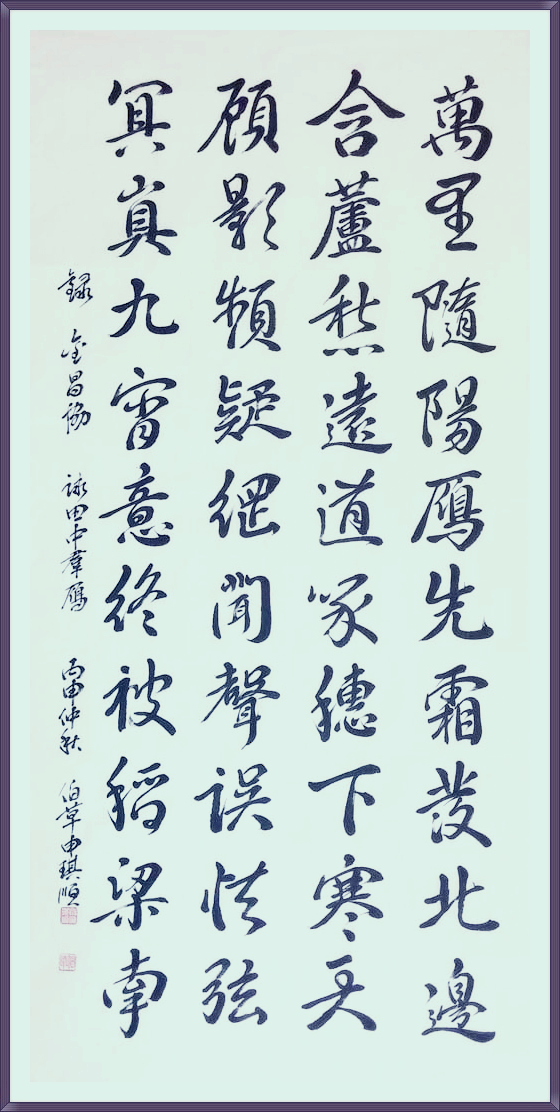 萬里隨陽鴈先霜發北邊
含蘆愁遠道啄穗下寒天
顧影頻疑網聞聲誤怯弦
冥冥九宵意終被稻梁牽
錄 金昌協 詠田中羣鴈 丙申仲秋 伯草申琪順